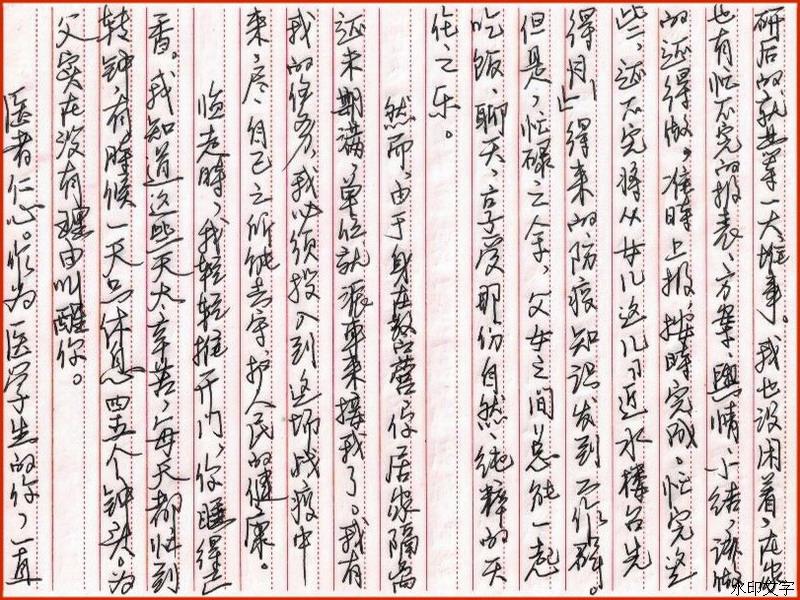 研后的就业等一大堆事。我也没闲着，在家
也有忙不完的报表、方案、舆情、小结，该做
的还得做。准时上报，按时完成。忙完这
些，还不忘将从女儿这儿“近水楼台先
得月”得来的防疫知识发到工作群。
但是，忙碌之余，父女之间总能一起
吃饭、聊天，享受那份自然、纯粹的天
伦之乐。
然而，由于身在教育，居家隔离
还未期满，单位就派车来接我了。我有
我的任务，我必须投入到这场战疫中
来，尽自己之所能去守护人民的健康。
临走时，我轻轻推开门，你睡得正
香。我知道这些天太辛苦，每天都忙到
转钟，有时候一天只休息四五个钟头。为
父实在没有理由叫醒你。
医者仁心。作为医学生的你，一直
水印文字